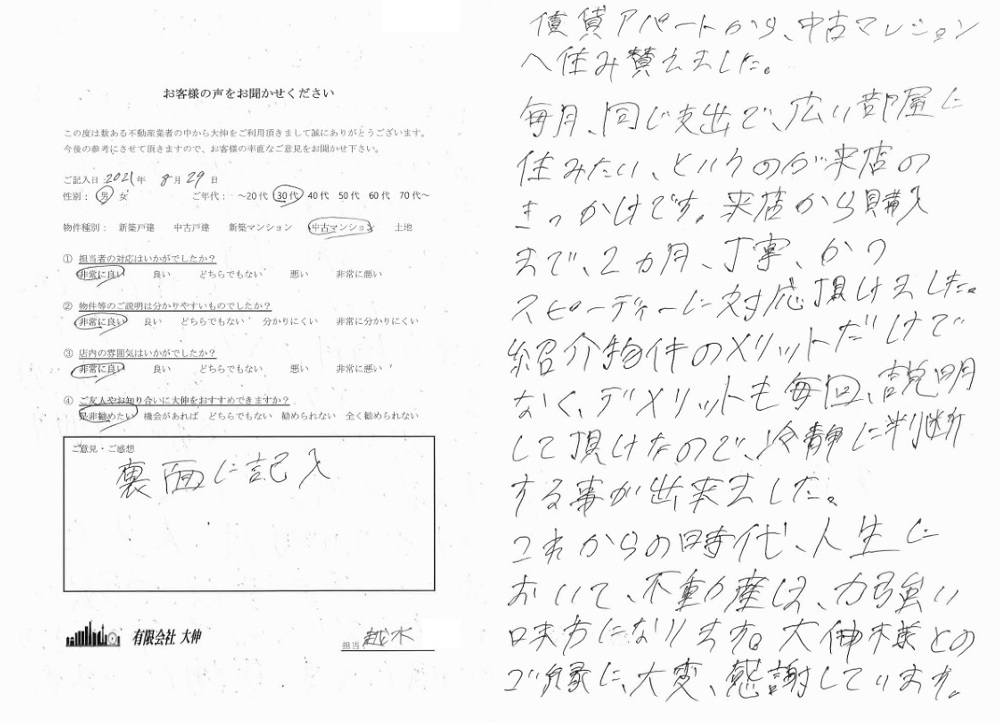 お客様の声をお聞かせください
この度は数ある不動産業者の中から大伸をご利用頂きまして誠にありがとうございます。
今後の参考にさせて頂きますので、お客様の率直なご意見をお聞かせ下さい。
ご記入日:2021年 8月29日
性別: 男 女 ご年代: ～20代 30代 40代 50代 60代 70代～
物件種別: 新築戸建 中古戸建 新築マンション 中古マンション 土地
① 担当者の対応はいかがでしたか?
非常に良い 良い どちらでもない 悪い 非常に悪い
② 物件等のご説明は分かりやすいものでしたか?
非常に良い 良い どちらでもない 分かりにくい 非常に分かりにくい
③ 店内の雰囲気はいかがでしたか?
非常に良い 良い どちらでもない 悪い 非常に悪い
④ ご友人やお知り合いに大伸をおすすめできますか?
是非勧めたい 機会があれば どちらでもない 勧められない 全く勧められない
ご意見・ご感想
裏面に記入
有限会社 大伸
担当 越水
賃貸アパートから、中古マンション
へ住み替えました。
毎月、同じ支出で、広い部屋に
住みたい、というのが来店の
きっかけです。来店から購入
まで、2カ月、丁寧、かつ
スピーディーに対応頂けました。
紹介物件のメリットだけで
なく、デメリットも毎回、説明
して頂けたので、冷静に判断
する事が出来ました。
これからの時代、人生に
おいて、不動産は、力強い
味方になります。大伸様との
ご縁に、大変、感謝しています。